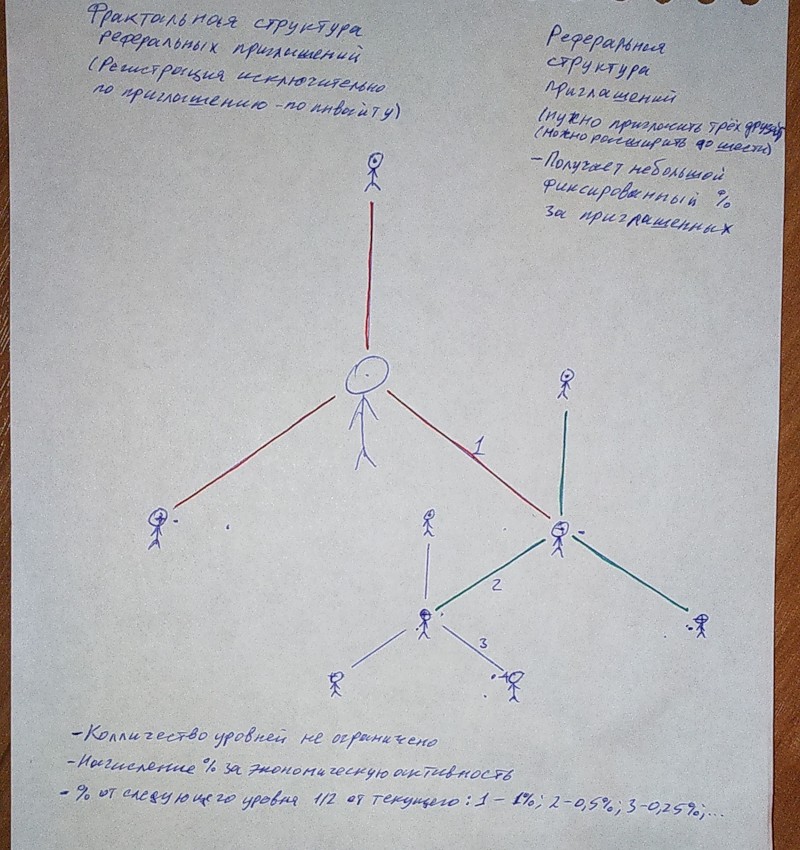 Фрактальная структура
реферальных приглашений
(Регистрация исключительно
по приглашению - по инвайту)
Реферальная
структура
приглашений
(нужно пригласить трёх друзей)
(можно расширить до шести)
- Получает небольшой
фиксированный %
за приглашенных
1
2
3
- Колличество уровней не ограничено
- Начисление % за экономическую активность
- % от следующего уровня 1/2 от текущего: 1 - 1%; 2 - 0,5%; 3 - 0,25%;...